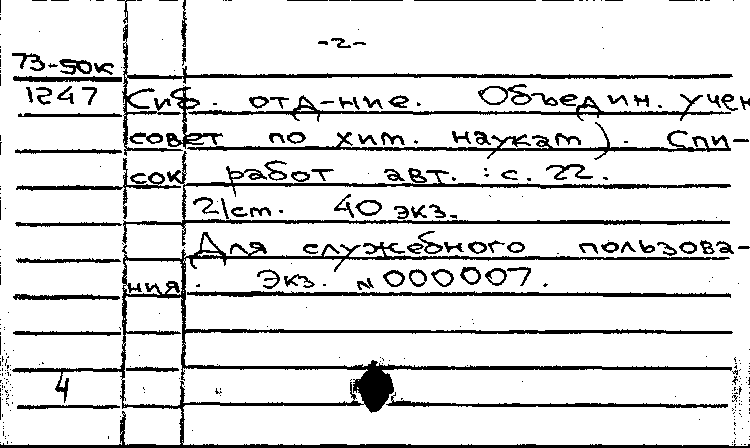 -2-
73-50к
1247 Сиб. отд-ние. Объедин. учен
совет по хим. наукам). Спи-
сок работ авт. : с. 22.
21 ст. 40 экз.
Для служебного пользова-
ния. Экз. N 000007.
4